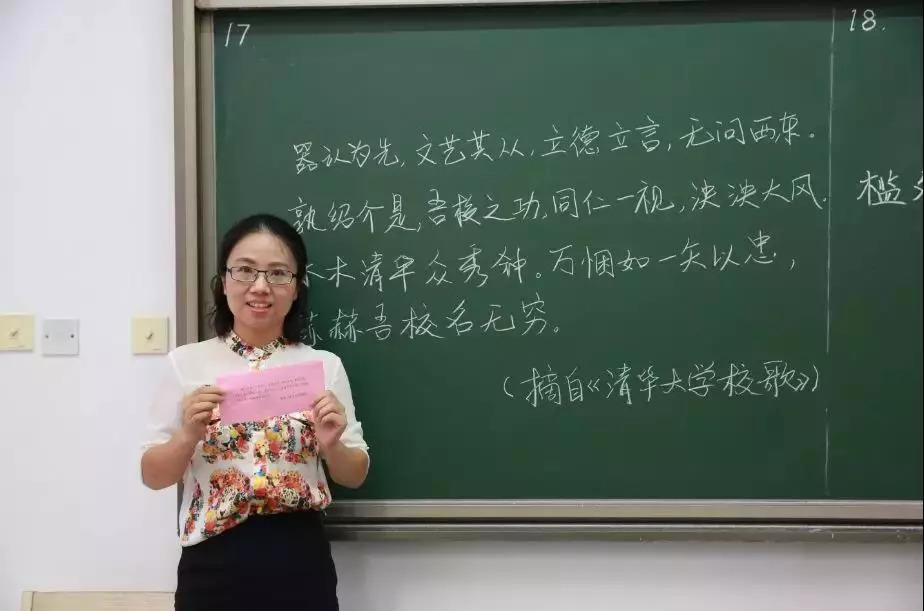 17
18.
器认为先,文艺其从,立德立言,无问西东。
孰绍介是,吾校之功,同仁一视,泱泱大风.
木清华众秀钟。万悃如一矢以忠,
赫吾校名无穷。
(摘自《清华大学校歌》)
槛